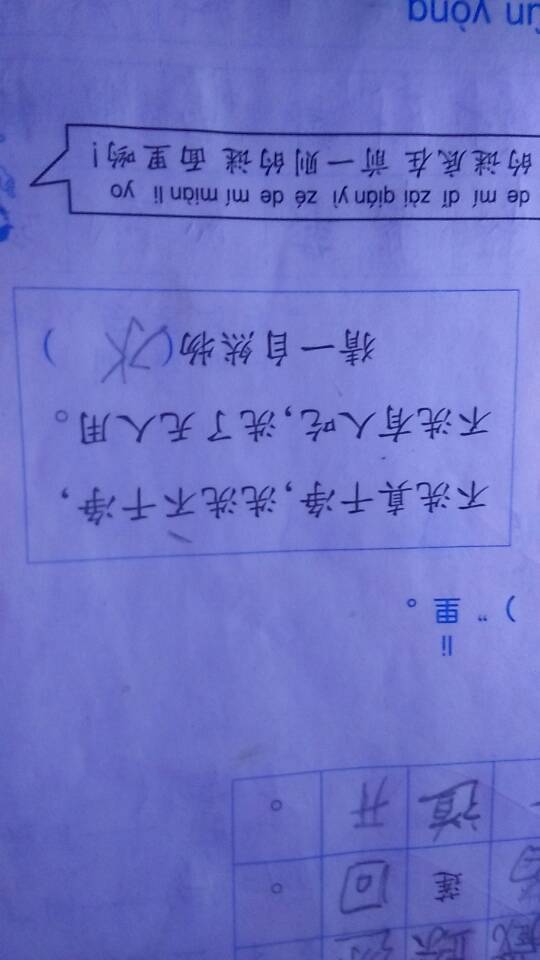 藏踪迹
白莲回。
一道开。
li
）”里。
不洗真干净,洗洗不干净,
不洗有人吃,洗了无人用。
猜一自然物(水)
de mí dǐ zài qián yì zé de mí miàn li yo
的谜底在前一则的谜面里哟!
yòng